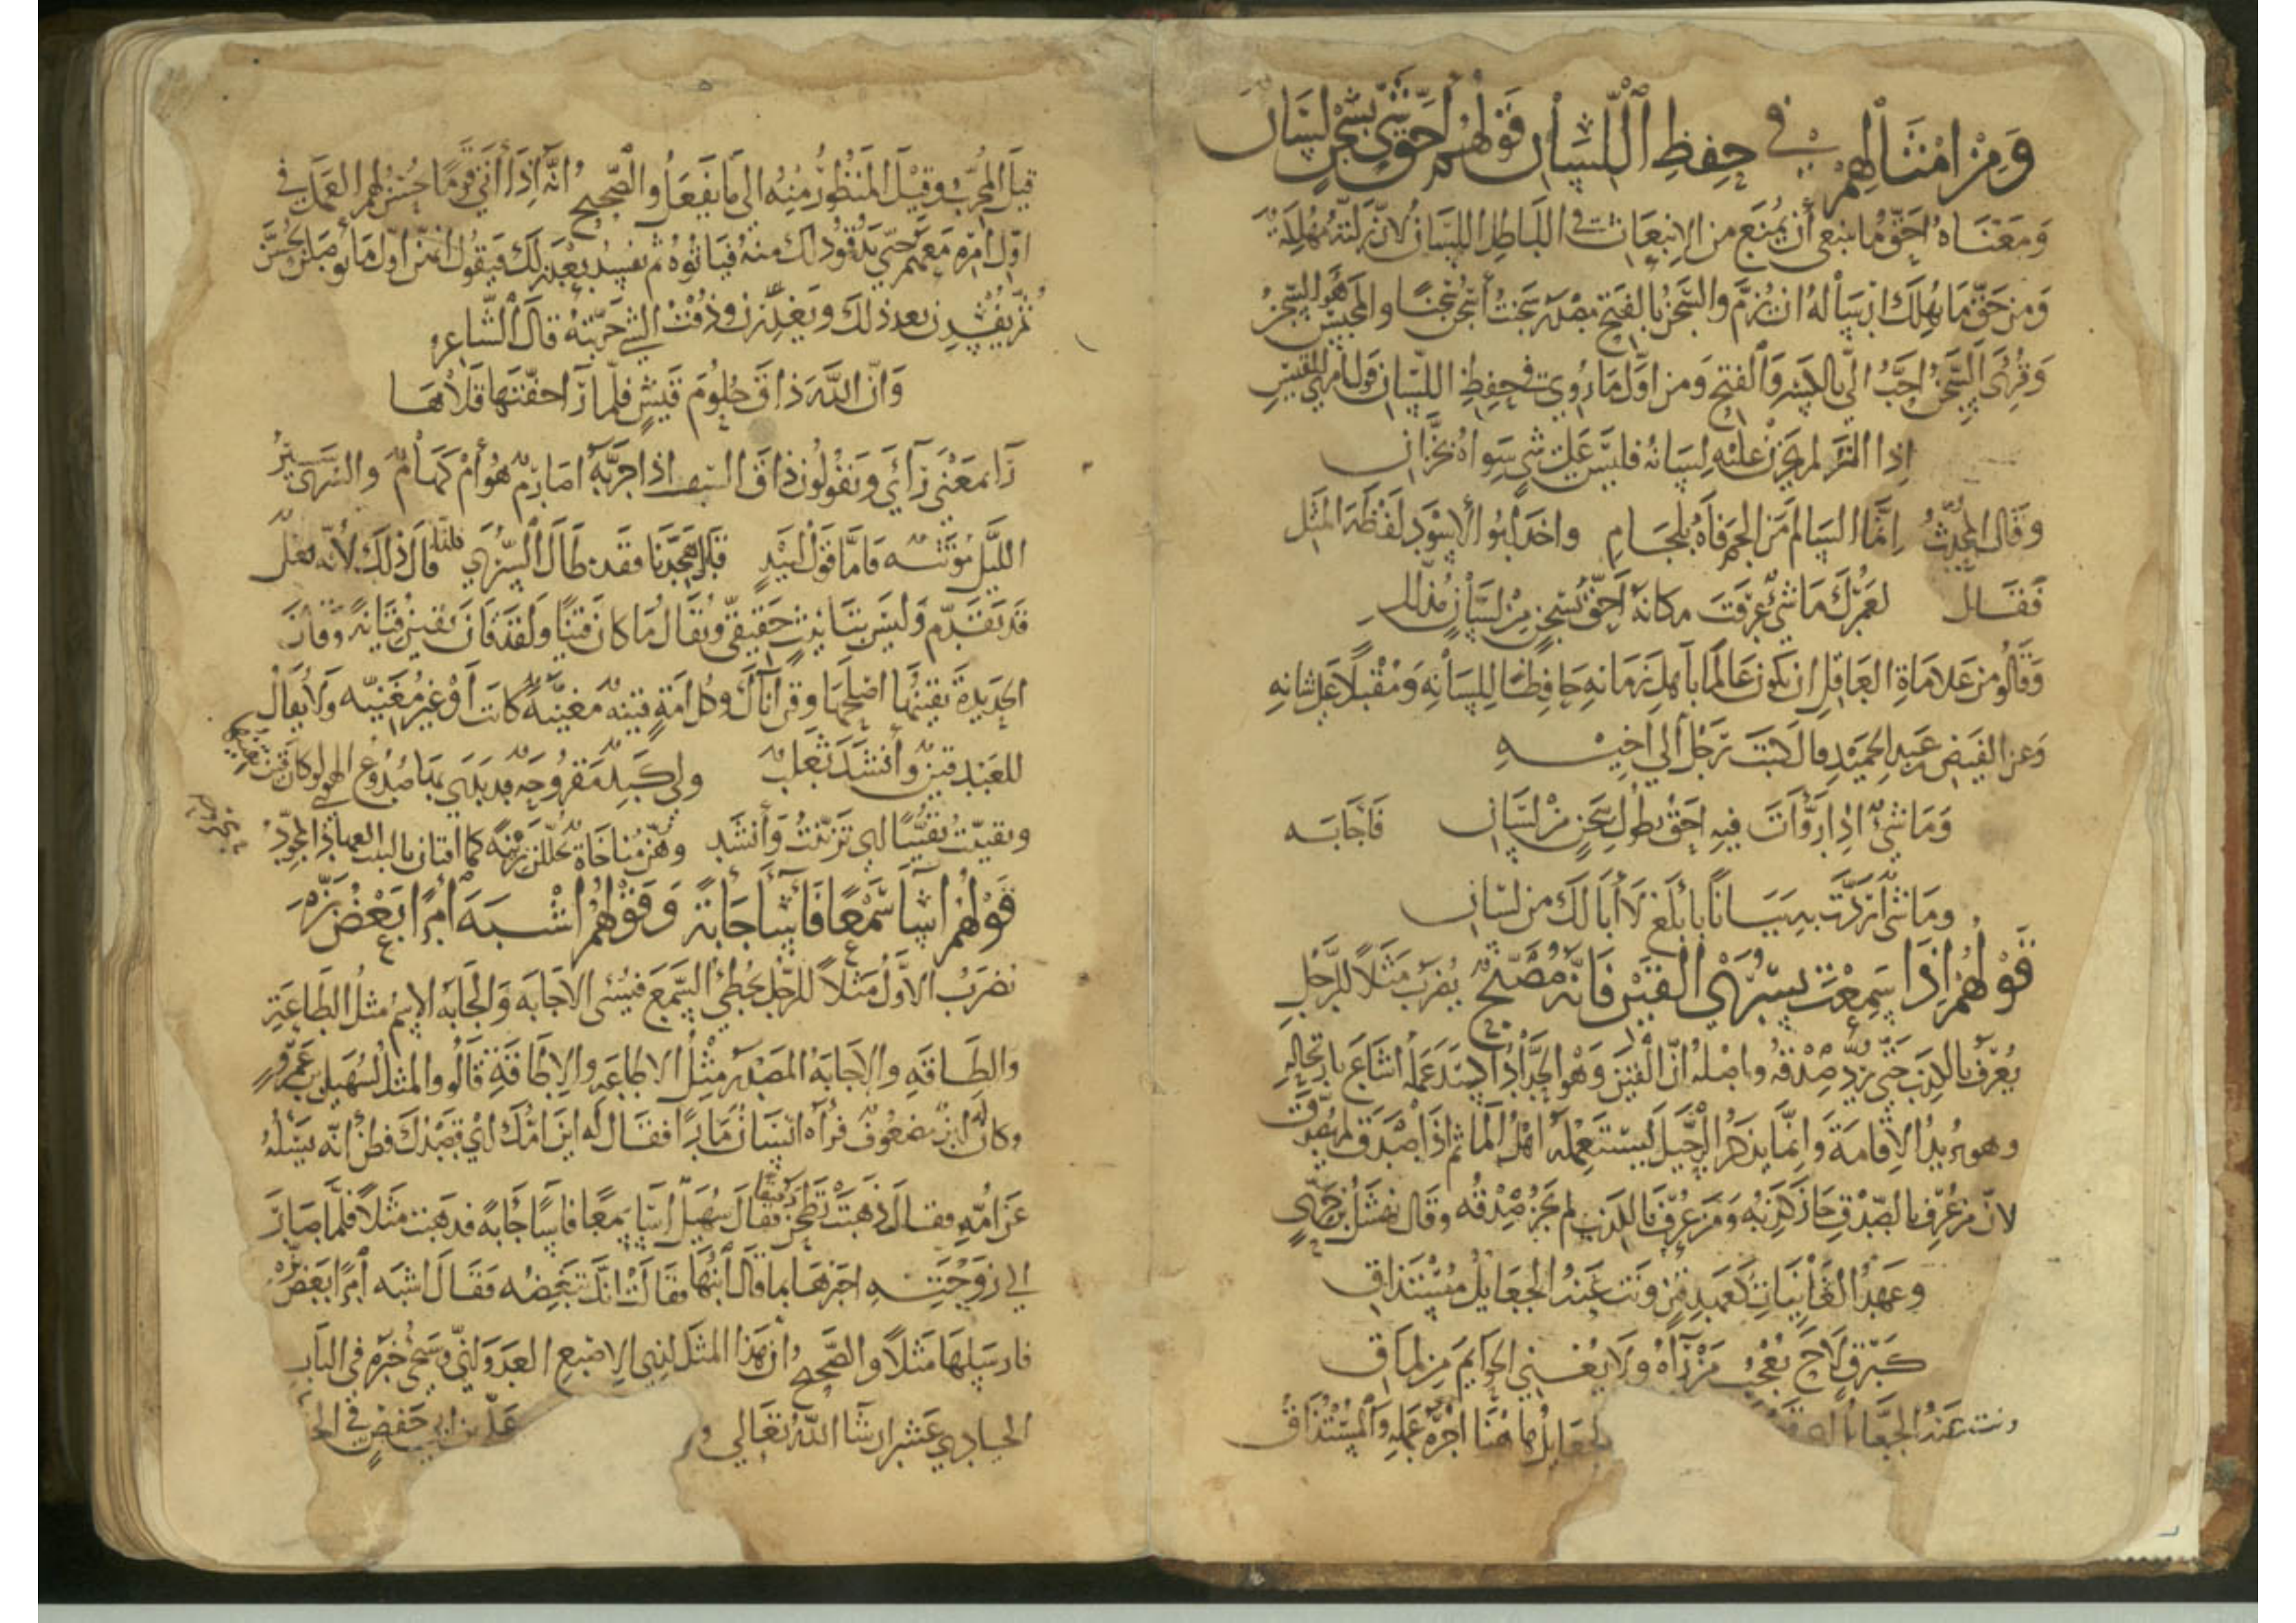 ومن امثالهم في حفظ اللسان قولهم احق شي بسجن لسان
ومعناه احق ما ينبغي أن يمنع من الانبعاث في الباطل اللسان لان زلته مهلكة
ومن حق ما يهلك ارساله ان يزم والسجن بالفتح مصدر سجنت أسجن سجنا والمحبس هو السجن
وقرئ السجن احب الي بالكسر والفتح ومن اول ما روي في حفظ اللسان قول امرئ القيس
اذا المرء لم يخزن عليه لسانه فليس على شي سواه بخزان
وقال المحدث انما السالم من الجم فاه بلجام واخذ ابو الاسود لفظة المثل
فقال لعمرك ما شي عرفت مكانه احق بسجن من لسان مذلل
وقالو من علاماة العاقل ان يكون عالما باهل زمانه حافظا للسانه ومقبلا على شانه
وعن الفيض عبد الحميد قال كتب رجل الي اخيه
وما شي اذا روأت فيه احق بطول سجن من لسان فاجابه
وما شي اردت به بيانا بابلغ لا أبا لك من لسان
قولهم اذا سمعت بسرى القين فانه مصبح يضرب مثلا للرجل
يعرف بالكذب حتى يرد صدقه واصله ان القين وهو الحداد اذا كسد عمله اشاع بارتحاله
وهو يريد الاقامة وانما يذكر الرحيل ليستعمله اهل الما ثم اذا صدق لم يصدق
لان من عرف بالصدق جاز كذبه ومن عرف بالكذب لم يجز صدقه وقال نهشل بن حري
وعهد الغانيات كعهد قين ونت عنه الجعايل مستذاق
كبرق لاح يعجب من رآه ولا يغني الحوايم من لماق
ونت عنه الجعايل الجعايل هاهنا اجرة عمله والمستذاق
قيل المجرب وقيل المنظور منه الى ما يفعل والصحيح انه اذا أتى قوما حسن لهم العمل في
اول امره معهم حتى يذوقو ذلك منه فياتوه ثم يفسد بعد ذلك فيقول انهن اول ما يوصلن يحسن
ثم يفسدن بعد ذلك ويغدرن وذقت الشي جربته قال الشاعر
وان الله ذاق حلوم قيس فلما رآ خفتها قلاها
رآ بمعنى رآي ويقولون ذاق السيف اذا جربه اصارم هو أم كهام والسرى سير
الليل مؤنثه فاما قول لبيد قال هجدنا فقد طال السرى فلنا قال ذلك لأنه فعل
قد تقدم وليس بتانيث حقيقي ويقال ما كان قينا ولقد قان يقين قيانة وقان
الحديدة يقينها اصلحها وقن اناك وكل امة قينه مغنية كانت أو غير مغنيه ولا يقال
للعبد قين وأنشد ثعلب ولي كبد مقروحه قد بدى بها صدوع الهوى لو كان قين يقينها
وتقينت تقينا اي تزينت وأنشد وهن مناخاة تجللن زينة كما اقتان بالنبت العهاد المجود
قولهم اسا سمعا فاسا جابة وقولهم اشبه امرا بعض بزه
يضرب الاول مثلا للرجل يخطئ السمع فيسئ الاجابه والجابه الاسم مثل الطاعة
والطاقه والاجابة المصدر مثل الاطاعه والاطاقة قالو والمثل لسهيل بن عمرو
وكان له ابن مضعوف فرآه انسان مارا فقال له اين امك اي قصدك فظن انه يسئله
عن أمه فقال ذهبت تطحن دقيقا فقال سهيل اسا سمعا فاسا جابة فذهبت مثلا فلما صار
الى زوجته اخبرها بما قال ابنها فقالت انك تبغضه فقال اشبه امرا بعض بزه
فارسلها مثلا والصحيح أن هذا المثل لذي الاصبع العدواني وسنخرجه في الباب
الحادي عشر ان شا الله تعالى